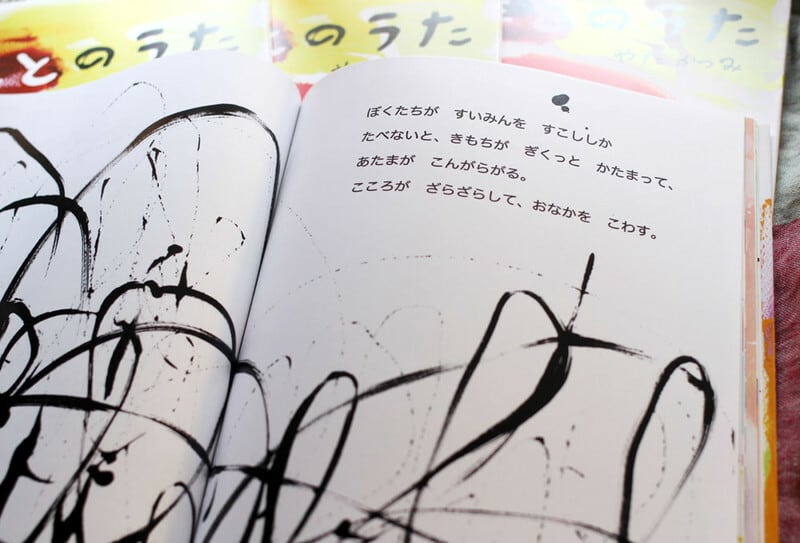 とのうた
のうた
のうた
やたかつみ
ぼくたちが　すいみんを　すこししか
たべないと、きもちが　ぎくっと　かたまって、
あたまが　こんがらがる。
こころが　ざらざらして、おなかを　こわす。